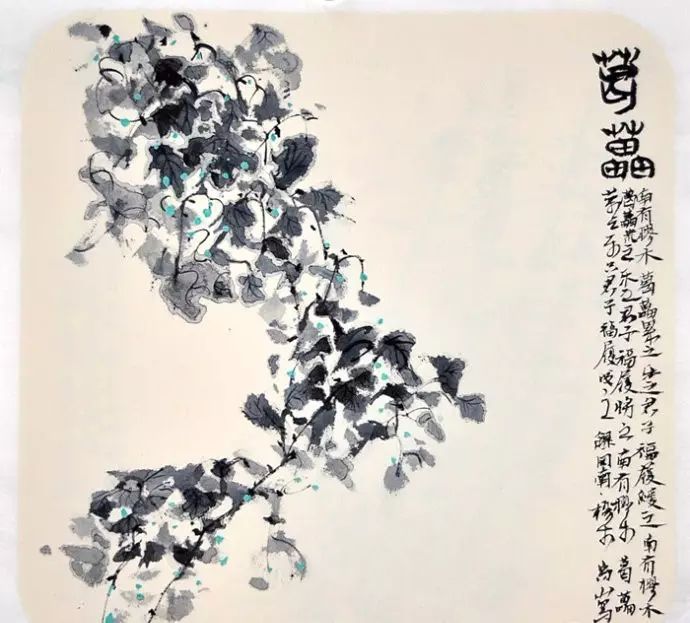 葛藟
南有樛木 葛藟累之 乐只君子 福履綏之 南有樛木
葛藟荒之 乐只君子 福履将之 南有樛木 葛藟
萦之 乐只君子 福履成之 周南·樛木